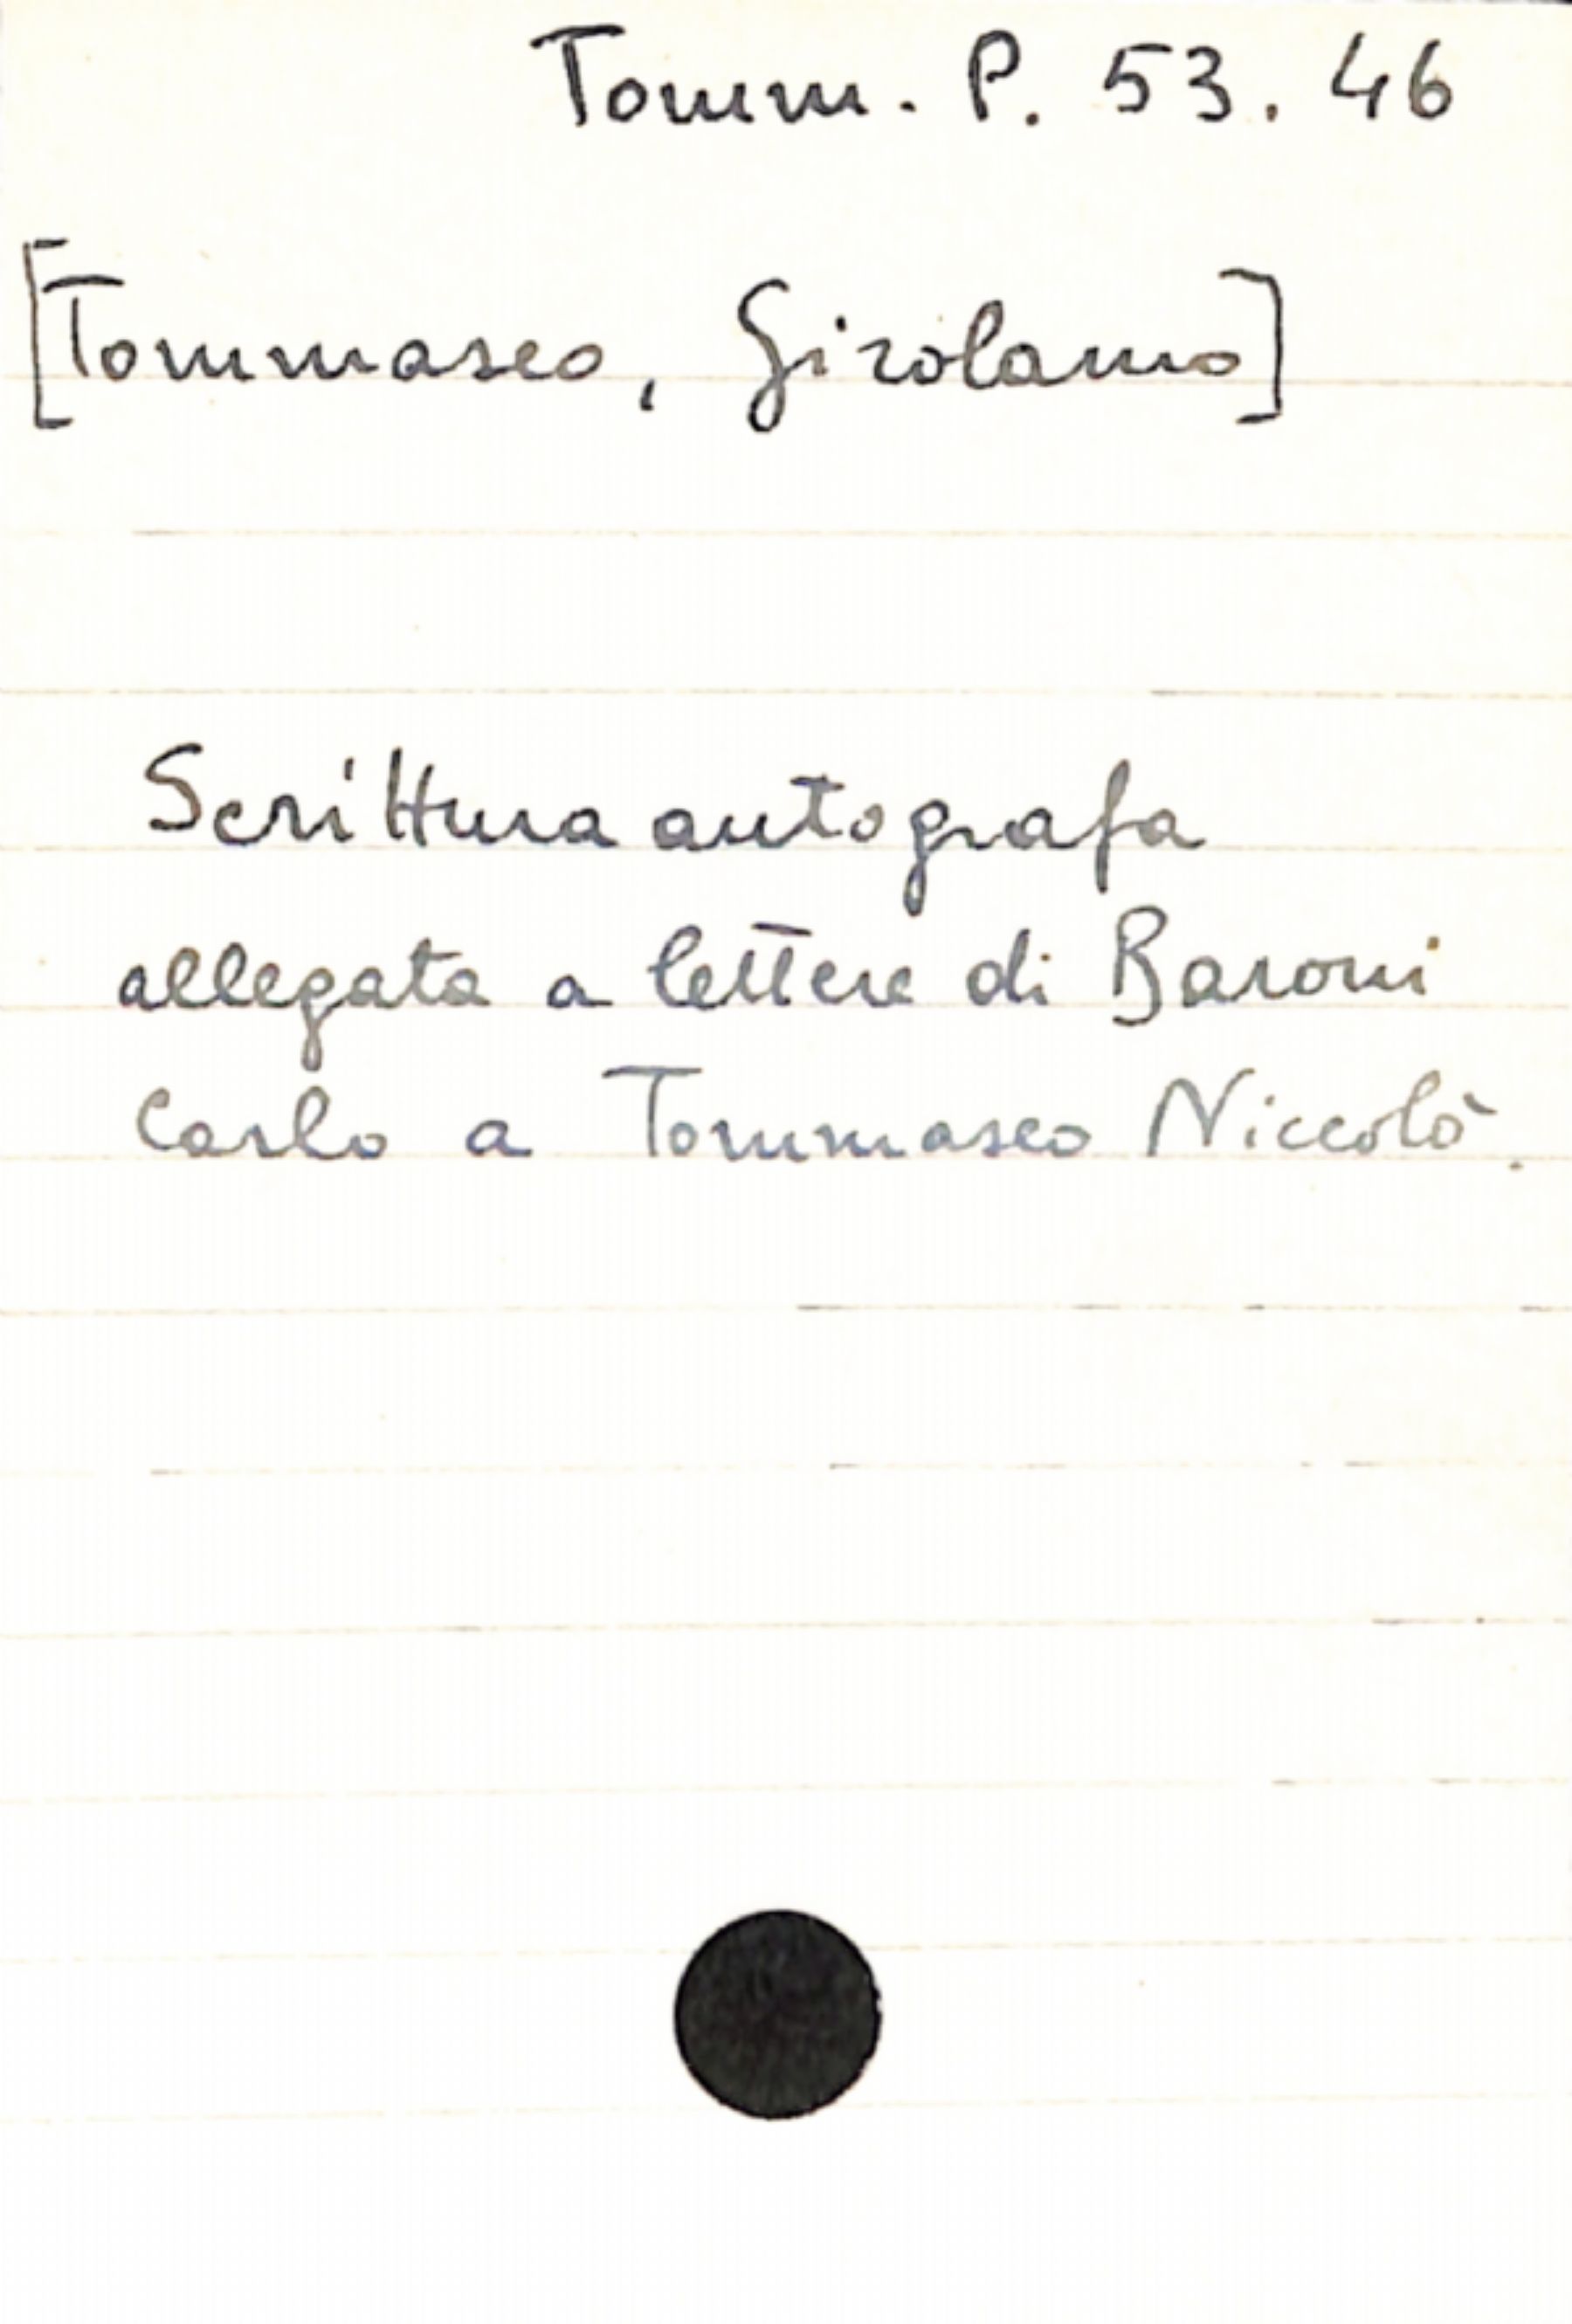 Tomm. P. 53. 46
[Tommaseo, Girolamo]
Scrittura autografa
allegata a lettere di Baroni
Carlo a Tommaseo Niccolò.